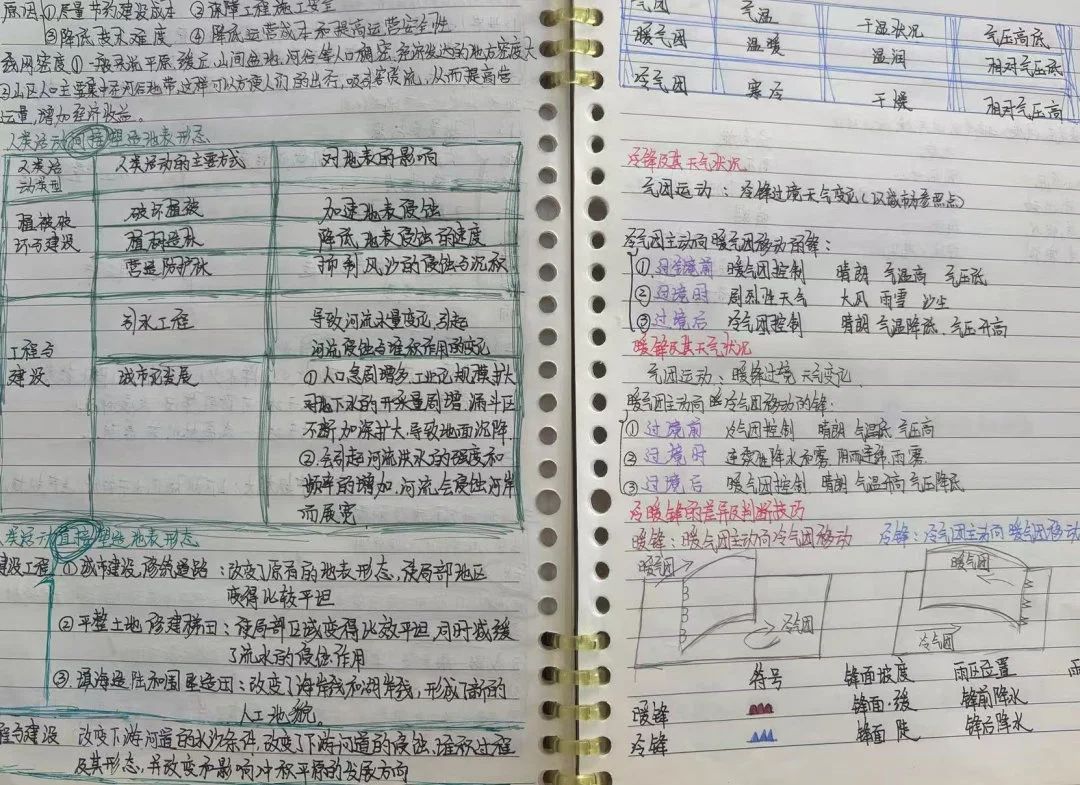 原因、①尽量节约建设成本 ②保障工程施工安全
③降低技术难度 ④降低运营成本和提高运营安全性
线网密度①一般来说平原、缓丘、山间盆地、河谷等人口稠密、经济发达的地方密度大
②山区人口主要集中在河谷地带,这样可以方便人们的出行,吸引客货流,从而提高营
运量,增加经济效益。
人类活动间接塑造地表形态
人类活动类型 人类活动的主要方式 对地表的影响
植被破坏与建设 破坏植被 加速地表侵蚀
植树造林 降低地表侵蚀的速度
营造防护林 抑制风沙的侵蚀与沉积
工程与建设 引水工程 导致河流水量变化,引起
河流侵蚀与堆积作用的变化
城市化发展 ①人口急剧增多、工业化规模扩大
对地下水的开采量剧增,漏斗区
不断加深扩大,导致地面沉降
②会引起河流洪水的强度和
频率的增加,河流会侵蚀河岸
而展宽
类活动直接塑造地表形态
建设工程①城市建设、修筑道路:改变了原有的地表形态,使局部地区
变得比较平坦
②平整土地、修建梯田:使局部区域变得比较平坦,同时减缓
了流水的侵蚀作用
③填海造陆和围垦造田:改变了海岸线和湖岸线,形成了新的
人工地貌。
程与建设 改变下游河道的水沙条件,改变了下游河道的侵蚀、堆积过程
及其形态,并改变和影响冲积平原的发展方向
气团 气温 干湿状况 气压高底
暖气团 温暖 湿润 相对气压低
冷气团 寒冷 干燥 相对气压高
冷锋及其天气状况
气团运动:冷锋过境天气变化(以城市为参照点)
冷气团主动向暖气团移动的锋:
①过境前 暖气团控制 晴朗 气温高 气压低
②过境时 剧烈性天气 大风 雨雪 沙尘
③过境后 冷气团控制 晴朗 气温降低 气压升高
暖锋及其天气状况
气团运动:暖锋过境天气变化
暖气团主动向冷气团移动的锋:
①过境前 冷气团控制 晴朗 气温低 气压高
②过境时 连续性降水和雾 雨雾
③过境后 暖气团控制 晴朗 气温升高 气压降低
冷暖锋的差异及判断技巧
暖锋:暖气团主动向冷气团移动 冷锋:冷气团主动向暖气团移动
暖气团 冷气团
暖气团 冷气团
符号 锋面坡度 雨区位置 雨
暖锋 锋面缓 锋前降水
冷锋 锋面陡 锋后降水